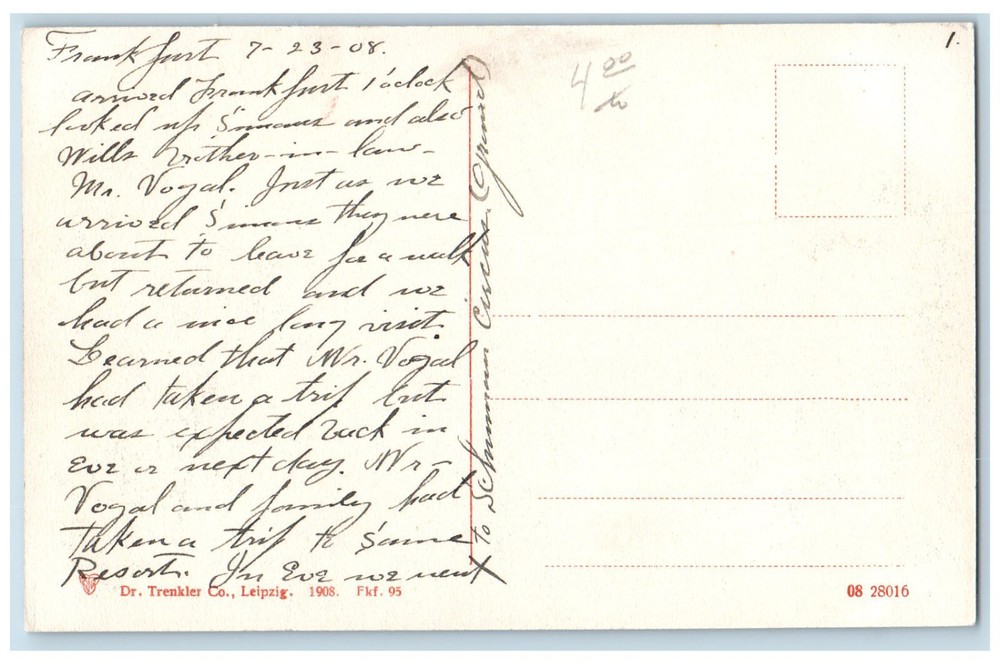 Frankfurt 7-23-08.
arrived Frankfurt 1 o'clock
looked up Simans and also
Wills brother-in-law-
Mr. Vogal. Just as we
arrived Simans they were
about to leave for a walk
but returned and we
had a nice long visit.
Learned that Mr. Vogal
had taken a trip but
was expected back in
Eve or next day. Mr-
Vogal and family had
taken a trip to same
Resort. In Eve we went
to Schumann Circus. Grand
4 00
1.
Dr. Trenkler Co., Leipzig. 1908. Fkf. 95
08 28016